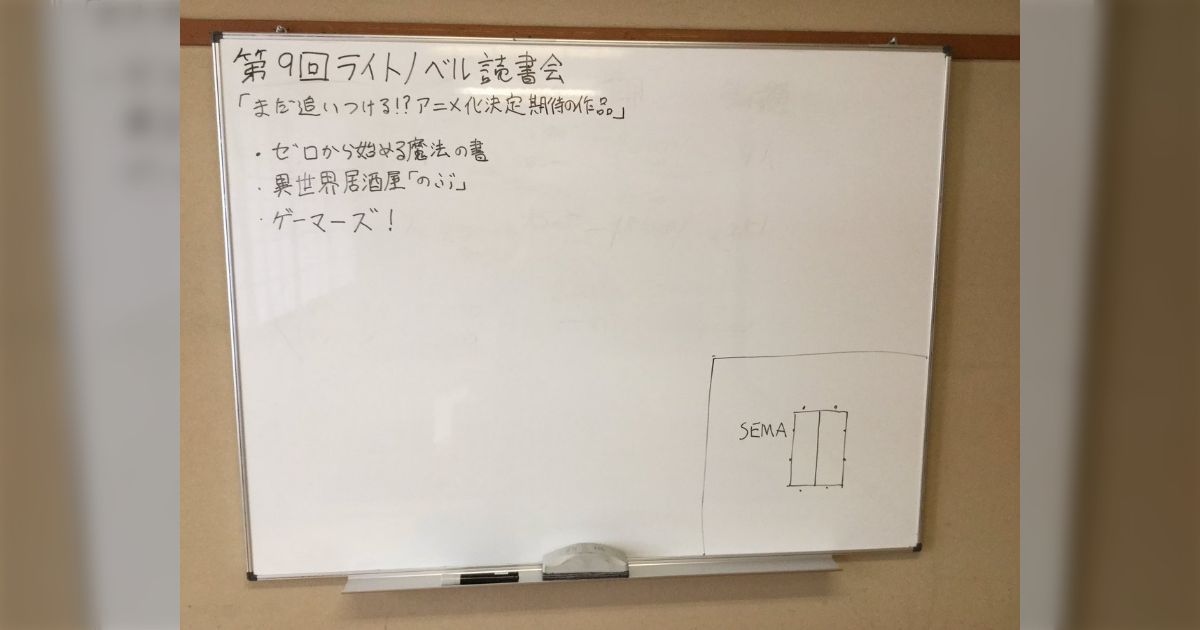 第9回ライトノベル読書会
「まだ追いつける!?アニメ化決定期待の作品」
・ゼロから始める魔法の書
・異世界居酒屋「のぶ」
・ゲーマーズ!
SEMA